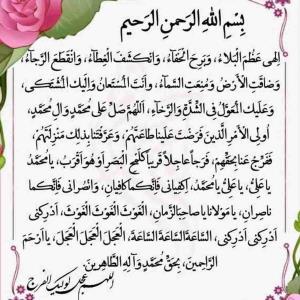 بِسْمِ اللهِ الرَحمنِ الرَحیم
اِلهی عَظُمَ الْبَلاءُ، وَبَرِحَ الْخَفآءُ، وَانْكَشَفَ الْغِطآءُ، وَانْقَطَعَ الرَّجآءُ،
وَضاقَتِ الْاَرْضُ، وَمُنِعَتِ السَّمآءُ، واَنْتَ الْمُسْتَعانُ، وَاِلَيْكَ الْمُشْتَكى،
وَعَلَيْكَ الْمُعَوَّلُ فِى الشِّدَّةِ وَالرَّخآءِ، اَللّهُمَّ صَلِّ عَلى مُحَمَّدٍ وَالِ مُحَمَّدٍ،
اُولِى الْاَمْرِ الَّذينَ فَرَضْتَ عَلَيْنا طاعَتَهُمْ، وَعَرَّفْتَنا بِذلِكَ مَنْزِلَتَهُمْ،
فَفَرِّجْ عَنا بِحَقِّهِمْ، فَرَجاً عاجِلاً قَريباً كَلَمْحِ الْبَصَرِ اَوْ هُوَ اَقْرَبُ، يا مُحَمَّدُ
يا عَلِىُّ، يا عَلِىُّ يا مُحَمَّدُ، اِكْفِيانى فَاِنَّكُما كافِيانِ، وَانْصُرانى فَاِنَّكُما
ناصِرانِ، يا مَوْلانا يا صاحِبَ الزَّمانِ، الْغَوْثَ الْغَوْثَ الْغَوْثَ، اَدْرِكْنى
اَدْرِكْنى اَدْرِكْنى، السّاعَةَ السّاعَةَ السّاعَةَ، الْعَجَلَ الْعَجَلَ الْعَجَلَ، يا اَرْحَمَ
الرّاحِمينَ، بِحَقِّ مُحَمَّدٍ وَآلِهِ الطّاهِرينَ.
اللهم عجل لولیک الفرج